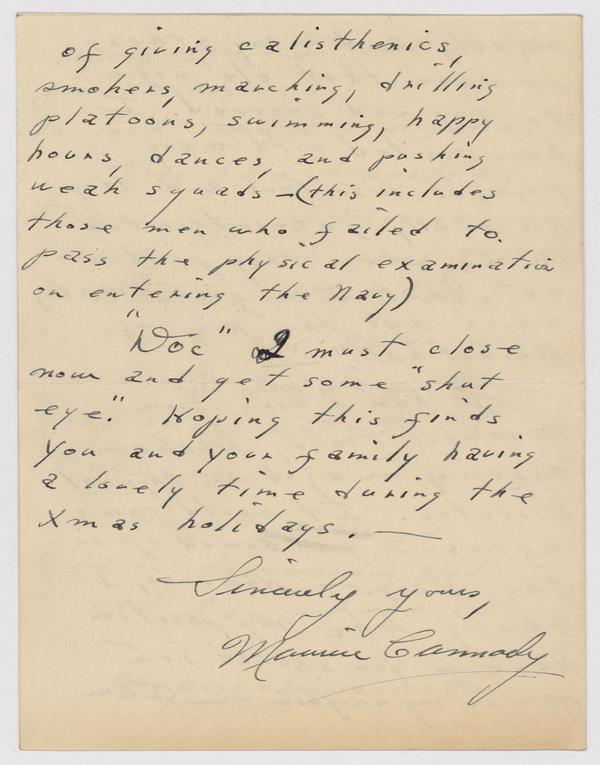 of giving calisthenics,
smokers, marching, drilling
platoons, swimming, happy
hours, dances, and pushing
weak squads – (this includes
those men who failed to
pass the physical examination
on entering the Navy)
"Doc" I must close
now and get some "shut
eye." Hoping this finds
you and your family having
a lovely time during the
Xmas holidays. —
Sincerely yours,
Maurice Cannady